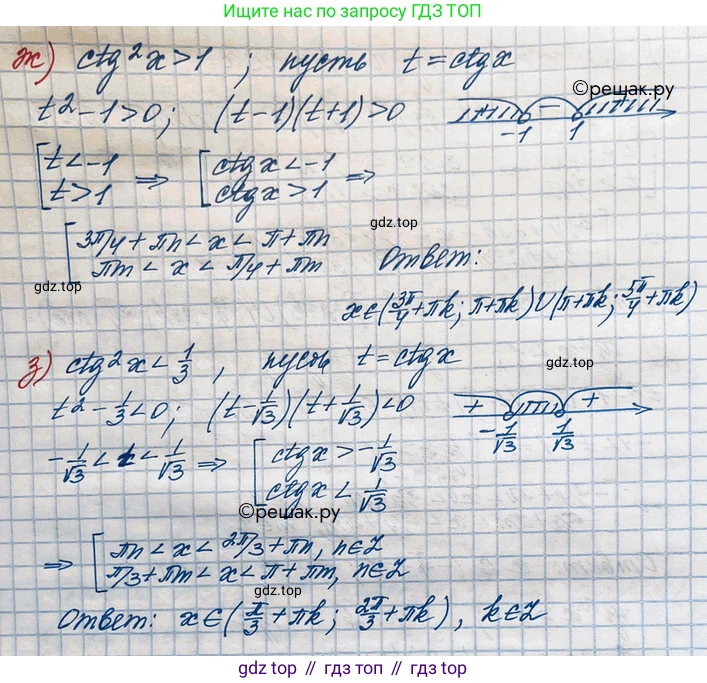 Ищите нас по запросу ГДЗ ТОП
ж) ctg²x>1 ; пусть t=ctgx
t²-1>0; (t-1)(t+1)>0
+ - +
-1 1
©решак.ру
[t<-1 ⇒ [ctgx<-1 ⇒
t>1 ctgx>1
gdz.top
[3π/4+πn<x<π+πn
πm<x<π/4+πm
gdz.top
Ответ:
x∈(3π/4+πk; π+πk)∪(π+πk; 5π/4+πk)
з) ctg²x<1/3, пусть t=ctgx
gdz.top
t²-1/3<0; (t-1/√3)(t+1/√3)<0
+ +
-1/√3 1/√3
-1/√3<t<1/√3 ⇒ [ctgx>-1/√3
ctgx<1/√3
©решак.ру
⇒ [πn<x<2π/3+πn, n∈Z
π/3+πm<x<π+πm, n∈Z
Ответ: x∈(π/3+πk; 2π/3+πk), k∈Z
gdz.top // гдз.топ // gdz.top